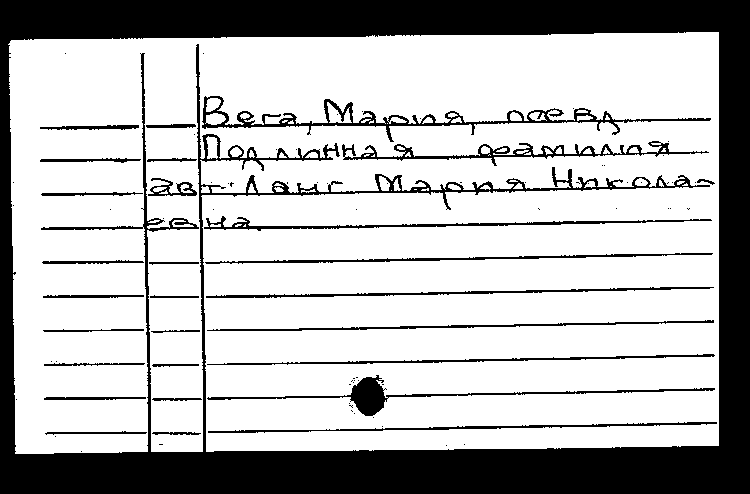 Вега, Мария, псевд
Подлинная фамилия
авт. Ланг Мария Никола-
евна.